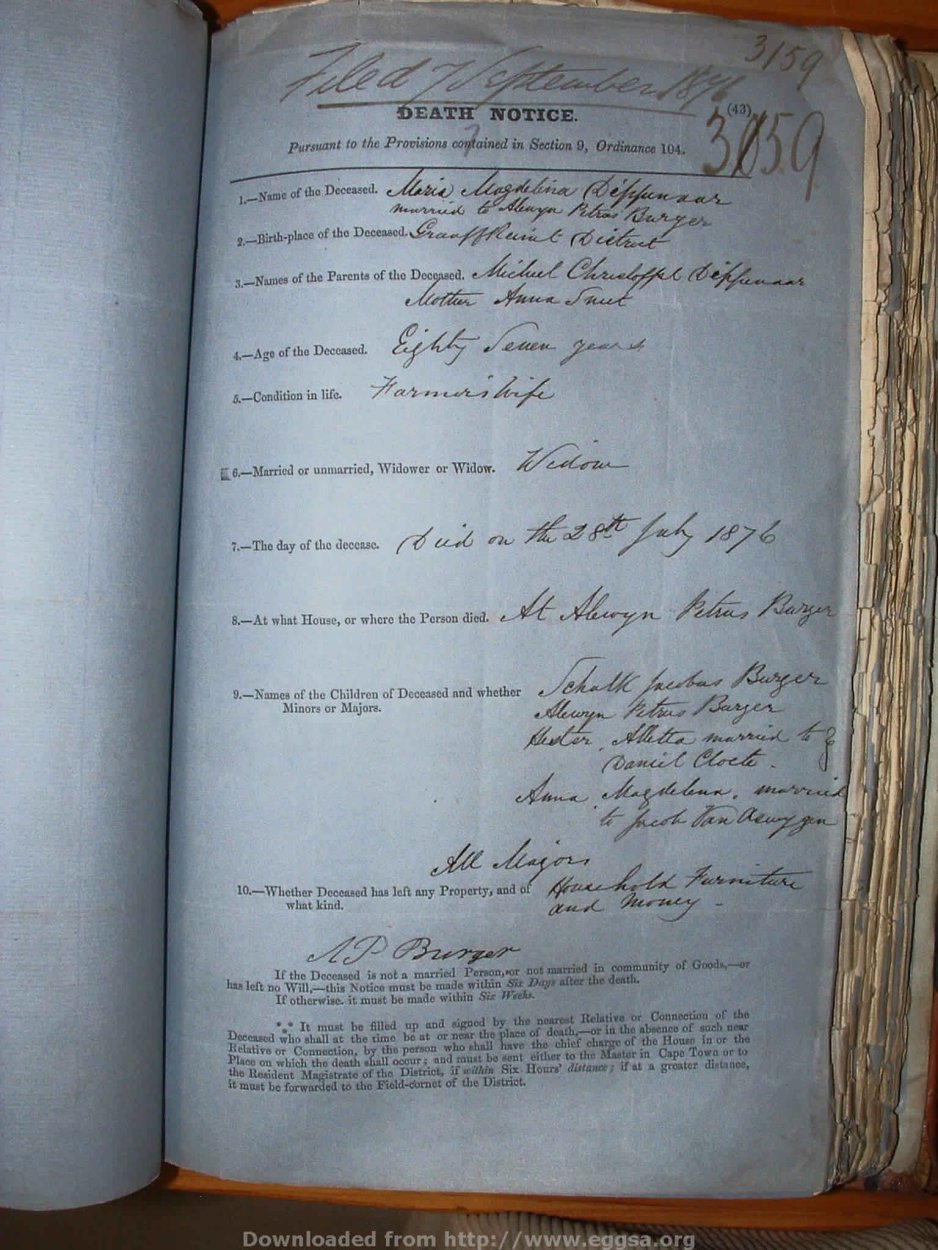 3159
Filed 7 September 1876
(43)
DEATH NOTICE.
3159
Pursuant to the Provisions contained in Section 9, Ordinance 104.
1.—Name of the Deceased. Maria Magdelina Dippenaar
married to Alewyn Petrus Burger
2.—Birth-place of the Deceased. Graaff Reinet District
3.—Names of the Parents of the Deceased. Michiel Christoffel Dippenaar
Mother Anna Smit
4.—Age of the Deceased. Eighty Seven years
5.—Condition in life. Farmers Wife
6.—Married or unmarried, Widower or Widow. Widow
7.—The day of the decease. Died on the 28th July 1876
8.—At what House, or where the Person died. At Alewyn Petrus Burger
9.—Names of the Children of Deceased and whether Schalk Jacobus Burger
Minors or Majors.
Alewyn Petrus Burger
Hester Alletta married to
Daniel Cloete.
Anna Magdelena, married
to Jacob Van Aswygen
All Majors
10.—Whether Deceased has left any Property, and of Household Furniture
what kind. and Money -
A P Burger
If the Deceased is not a married Person, or not married in community of Goods,—or
has left no Will,—this Notice must be made within Six Days after the death.
If otherwise, it must be made within Six Weeks.
*** It must be filled up and signed by the nearest Relative or Connection of the
Deceased who shall at the time be at or near the place of death,—or in the absence of such near
Relative or Connection, by the person who shall have the chief charge of the House in or the
Place on which the death shall occur; and must be sent either to the Master in Cape Town or to
the Resident Magistrate of the District, if within Six Hours' distance; if at a greater distance,
it must be forwarded to the Field-cornet of the District.
Downloaded from http://www.eggsa.org